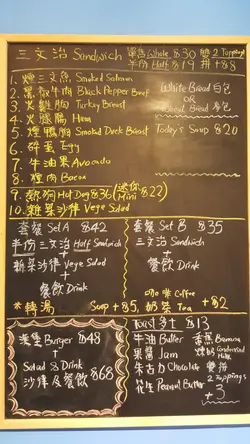 三文治 Sandwich 單售 Whole $30 雙 2 Toppings
半份 Half $19 拼 +$8
1. 煙三文魚 Smoked Salmon
2. 黑椒牛肉 Black Pepper Beef
3. 火雞胸 Turkey Breast
4. 火腿 Ham
5. 煙鴨胸 Smoked Duck Breast
6. 碎蛋 Egg
7. 牛油果 Avocado
8. 煙肉 Bacon
9. 熱狗 Hot Dog $36 (迷你 Mini $22)
10. 雜菜沙律 Vege Salad
White Bread 白包
OR
Wheat Bread 麥包
Today's Soup $20
套餐 Set A $42
半份 三文治 Half Sandwich
+
雜菜沙律 Vege Salad
+
餐飲 Drink
套餐 Set B $35
三文治 Sandwich
+
餐飲 Drink
*轉湯 Soup +$5, 咖啡 Coffee 奶茶 Tea +$2
漢堡 Burger $48
+
Salad & Drink
沙律 & 餐飲 $68
Toast 多士 $13
牛油 Butter
果醬 Jam
朱古力 Chocolate
花生 Peanut Butter
香蕉 Banana
煉奶 Condensed Milk
雙拼
2 Toppings
+3